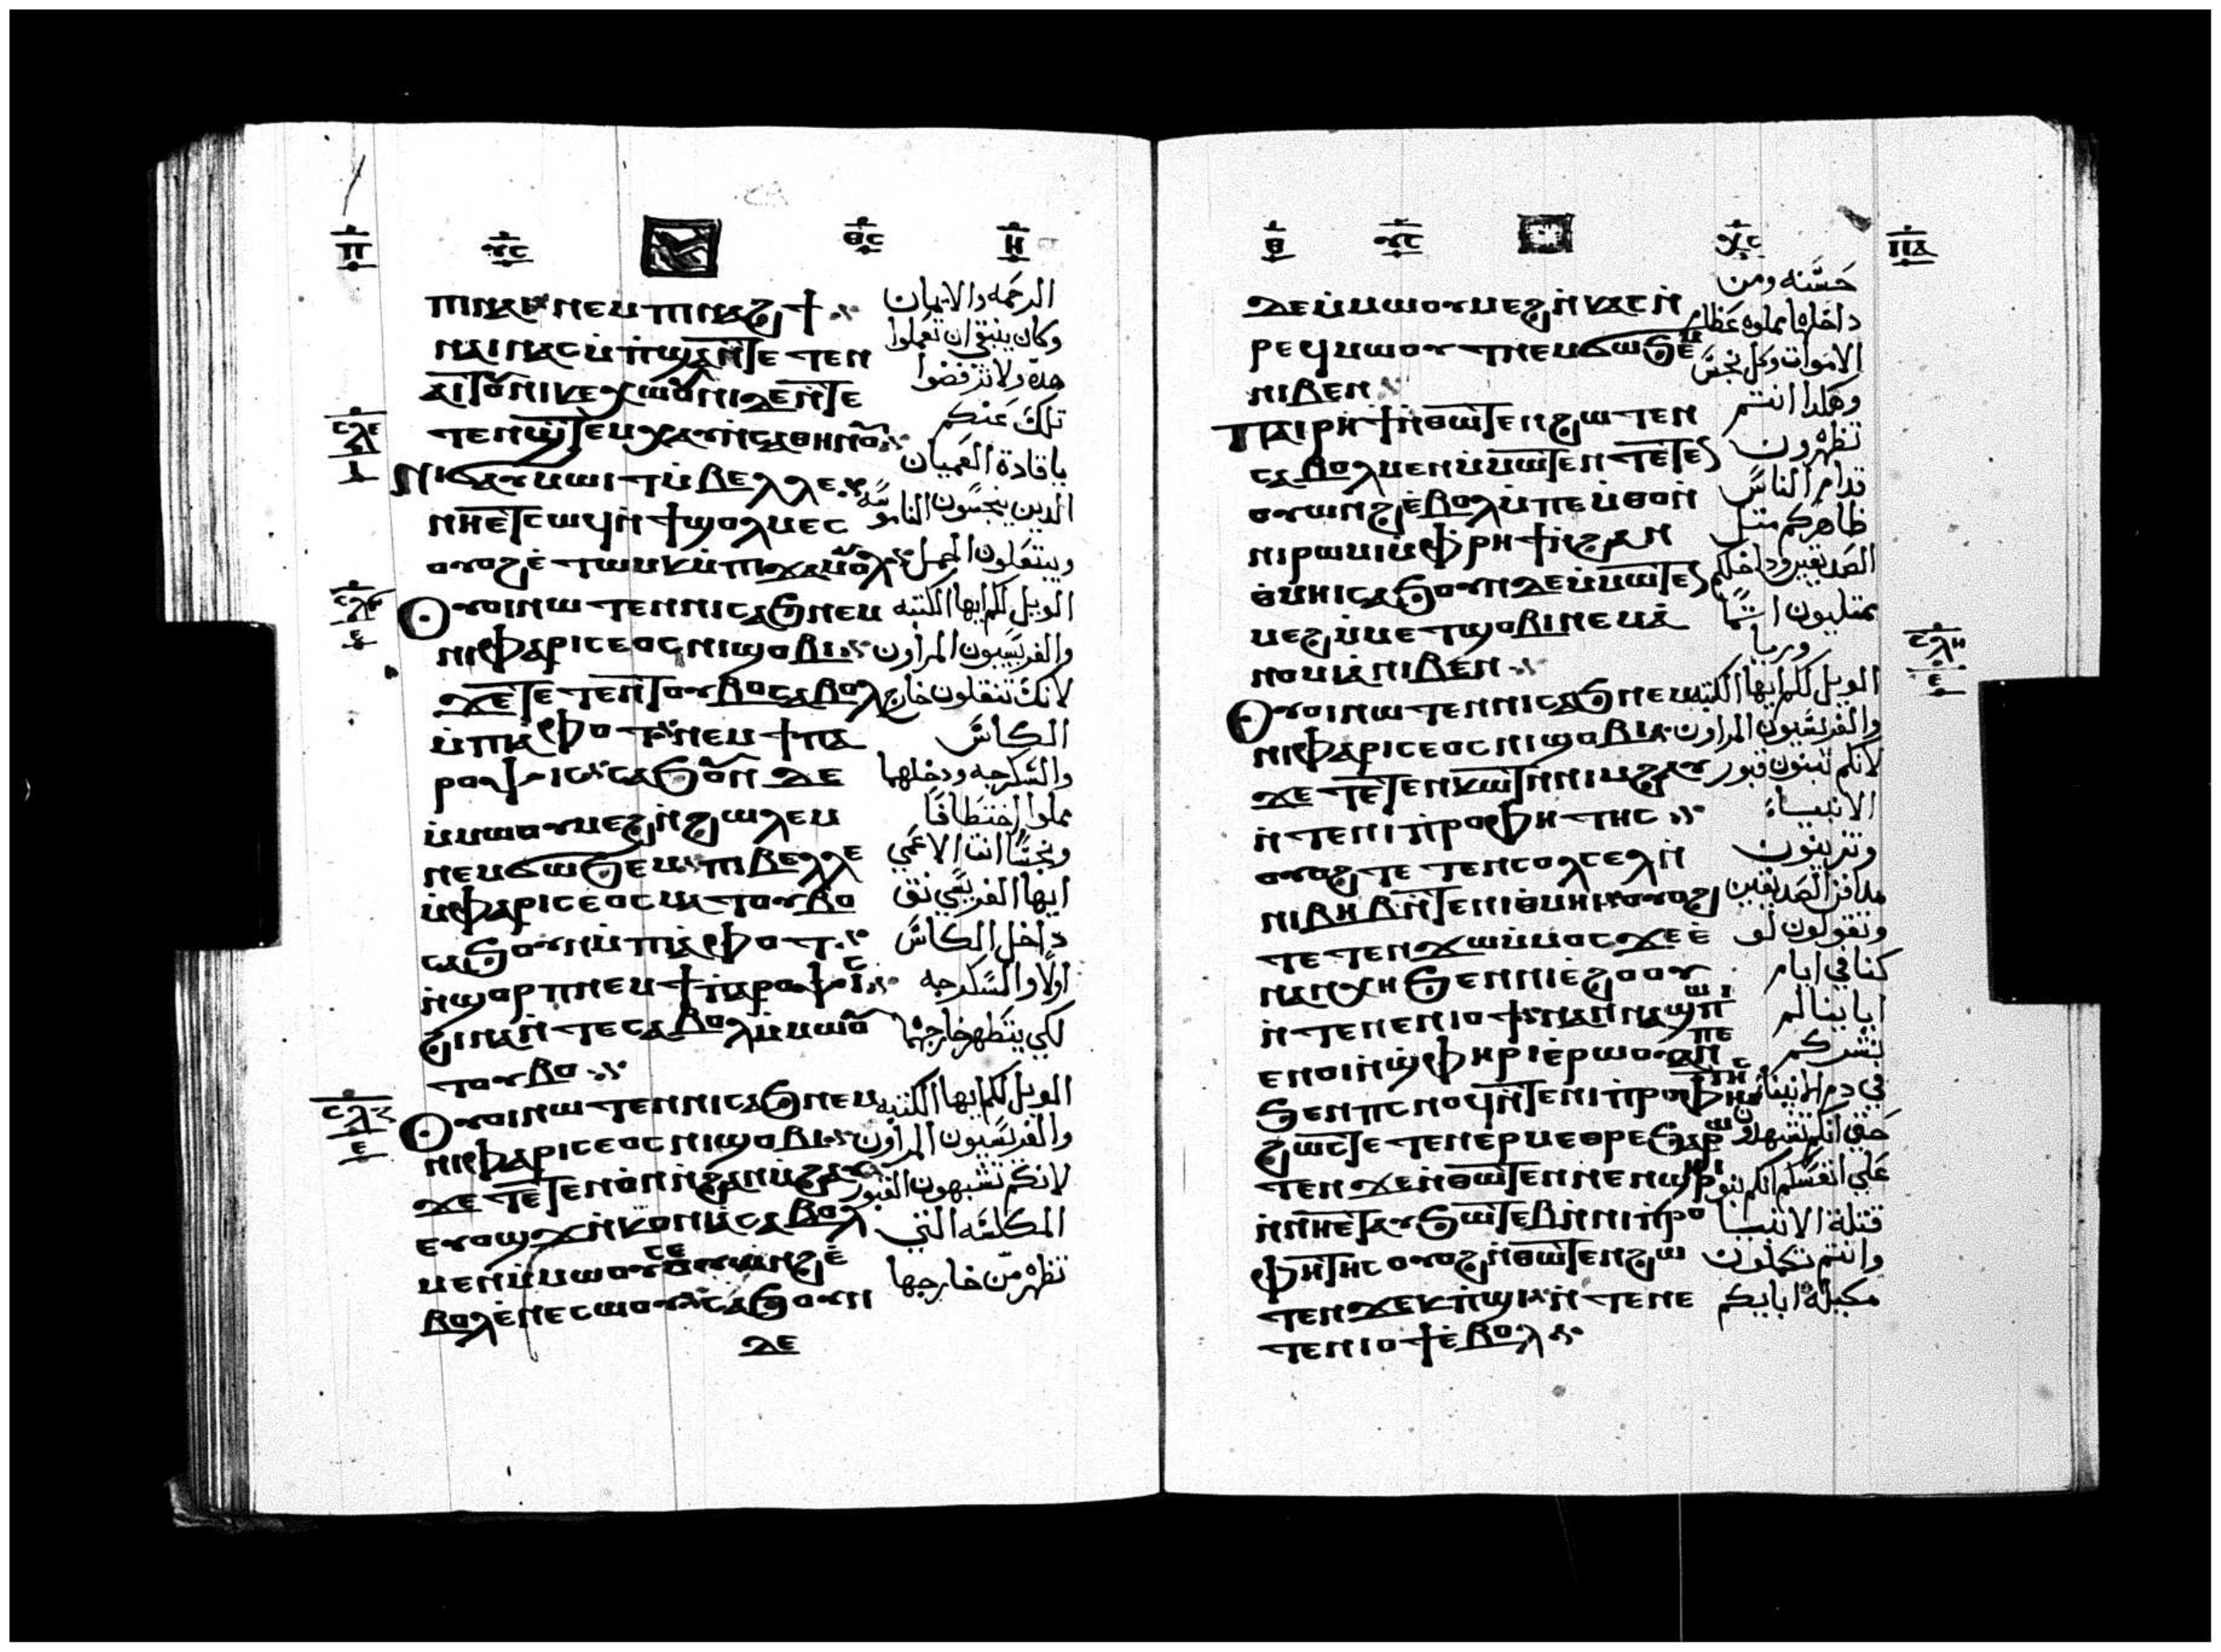 ⲡ ⲩⲥ ⲑⲥ ⲏ
ⲡⲓⲛⲁⲓ ⲛⲉⲙ ⲡⲓⲛⲁϩϯ
ⲛⲁⲓ ⲛⲁⲥⲙ̀ⲡ̀ϣⲁ ⲛ̀ⲧⲉⲧⲉⲛ
ⲁⲓⲧⲟⲩ ⲛⲓⲕⲉⲭⲱⲟⲩⲛⲓ ⲇⲉ ⲛ̀ⲧⲉ
ⲧⲉⲛϣ̀ⲧⲉⲙⲭⲁⲩ ⲛ̀ⲥⲁⲑⲏⲛⲟⲩ
ⲥⲗⲉ
ⲛⲓϭⲁⲩⲙⲱⲓⲧ ⲙ̀ⲃⲉⲗⲗⲉ
ⲛⲏⲉⲧⲥⲱϥ ⲛ̀ϯϣⲟⲗⲙⲉⲥ
ⲟⲩⲟϩ ⲉ̀ⲧⲱⲙⲕ ⲙ̀ⲡⲓϫⲁⲙⲟⲩⲗ
ⲟⲩⲟⲓ ⲛⲱⲧⲉⲛ ⲛⲓⲥⲁϧ ⲛⲉⲙ
ⲛⲓⲫⲁⲣⲓⲥⲉⲟⲥ ⲛⲓϣⲟⲃⲓ
ϫⲉ ⲧⲉⲧⲉⲛⲧⲟⲩⲃⲟ ⲥⲁⲃⲟⲗ
ⲙ̀ⲡⲓⲁ̀ⲫⲟⲧ ⲛⲉⲙ ϯⲡⲁ
ⲣⲟⲯⲓⲥ ⲥⲁϧⲟⲩⲛ ⲇⲉ
ⲙ̀ⲙⲱⲟⲩ ⲙⲉϩ ⲛ̀ϩⲱⲗⲉⲙ
ⲛⲉⲙ ϭⲱϧⲉⲙ ⲡⲓⲃⲉⲗⲗⲉ
ⲙ̀ⲫⲁⲣⲓⲥⲉⲟⲥ ⲙⲁⲧⲟⲩⲃⲟ
ⲥⲁϧⲟⲩⲛ ⲙ̀ⲡⲓⲁ̀ⲫⲟⲧ
ⲛ̀ϣⲟⲣⲡ ⲛⲉⲙ ϯⲡⲁⲣⲟⲯⲓⲥ
ϩⲓⲛⲁ ⲛ̀ⲧⲉⲥⲁⲃⲟⲗ ⲙ̀ⲙⲱⲟⲩ
ⲧⲟⲩⲃⲟ
ⲥⲗⲍ
ⲉ
ⲟⲩⲟⲓ ⲛⲱⲧⲉⲛ ⲛⲓⲥⲁϧ ⲛⲉⲙ
ⲛⲓⲫⲁⲣⲓⲥⲉⲟⲥ ⲛⲓϣⲟⲃⲓ
ϫⲉ ⲧⲉⲧⲉⲛⲟ̀ⲛⲓ ⲛ̀ϩⲁⲛⲙ̀ϩⲁⲩ
ⲉⲩⲟϣϫ ⲛ̀ⲕⲟⲛⲓⲁ ⲥⲁⲃⲟⲗ
ⲙⲉⲛ ⲙ̀ⲙⲱⲟⲩ ⲥⲉⲟⲩⲱⲛϩ ⲉ̀
ⲃⲟⲗ ⲉⲛⲉⲥⲱⲟⲩ ⲥⲁϧⲟⲩⲛ
ⲇⲉ
الرحمه والايمان
وكان ينبغي ان تعملوا
هده ولا تترفضوا
تلك عنكم
يا قادة العميان
الدين ينجسون الناموسه
ويبتعلون الجمل
الويل لكم ايها الكتبه
والفريسيون المراون
لانكم تنقلون خارج
الكاس
والسكرجه وداخلهما
مملوا اختطافا
ونجسا انت الاعمي
ايها الفريسي نق
داخل الكاس
اولا والسكرجه
لكي يتطهر خارجهما
الويل لكم ايها الكتبه
والفريسيون المراون
لانكم تشبهون القبور
المكلسه التي
تظهر من خارجها
ⲑ ⲩⲥ ⲭⲥ ⲡⲁ
ⲇⲉ ⲙ̀ⲙⲱⲟⲩ ⲙⲉϩ ⲛ̀ⲕⲁⲥ ⲛ̀
ⲣⲉϥⲙⲱⲟⲩⲧ ⲛⲉⲙ ϭⲱϧⲉⲙ
ⲛⲓⲃⲉⲛ
ⲡⲁⲓⲣⲏϯ ⲛ̀ⲑⲱⲧⲉⲛ ϩⲱⲧⲉⲛ
ⲥⲁⲃⲟⲗ ⲙⲉⲛ ⲙ̀ⲙⲱⲧⲉⲛ ⲧⲉⲧⲉⲛ
ⲟⲩⲱⲛϩ ⲉ̀ⲃⲟⲗ ⲙ̀ⲡⲉⲙ̀ⲑⲟ ⲛ̀
ⲛⲓⲣⲱⲙⲓ ⲙ̀ⲫⲣⲏϯ ⲛ̀ϩⲁⲛ
ⲑ̀ⲙⲏⲓ ⲥⲁϧⲟⲩⲛ ⲇⲉ ⲙ̀ⲙⲱⲧⲉⲛ
ⲙⲉϩ ⲙ̀ⲙⲉⲧϣⲟⲃⲓ ⲛⲉⲙ ⲁ̀
ⲛⲟⲙⲓⲁ ⲛⲓⲃⲉⲛ
ⲥⲗⲏ
ⲉ
ⲟⲩⲟⲓ ⲛⲱⲧⲉⲛ ⲛⲓⲥⲁϧ ⲛⲉⲙ
ⲛⲓⲫⲁⲣⲓⲥⲉⲟⲥ ⲛⲓϣⲟⲃⲓ
ϫⲉ ⲧⲉⲧⲉⲛⲕⲱⲧ ⲛ̀ⲛⲓⲙ̀ϩⲁⲩ
ⲛ̀ⲧⲉ ⲛⲓⲡ̀ⲣⲟⲫⲏⲧⲏⲥ
ⲟⲩⲟϩ ⲧⲉⲧⲉⲛⲥⲟⲗⲥⲉⲗ ⲛ̀
ⲛⲓⲃⲏⲃ ⲛ̀ⲧⲉ ⲛⲓⲑ̀ⲙⲏⲓ ⲟⲩⲟϩ
ⲧⲉⲧⲉⲛϫⲱ ⲙ̀ⲙⲟⲥ ϫⲉ ⲉ̀
ⲛⲁⲛⲭⲏ ϧⲉⲛ ⲛⲓⲉ̀ϩⲟⲟⲩ
ⲛ̀ⲧⲉ ⲛⲉⲛⲓⲟϯ ⲛⲁⲛⲛⲁϣⲱⲡⲓ
ⲉⲛⲟⲓ ⲛ̀ϣ̀ⲫⲏⲣ ⲓⲉ̀ⲣⲱⲟⲩ ⲁⲛ ⲡⲉ
ϧⲉⲛ ⲡⲥⲛⲟϥ ⲛ̀ⲧⲉ ⲛⲓⲡ̀ⲣⲟⲫⲏⲧⲏⲥ
ϩⲱⲥⲧⲉ ⲧⲉⲧⲉⲛⲉⲣⲙⲉⲑⲣⲉ ϧⲁⲣⲱ
ⲧⲉⲛ ϫⲉ ⲛ̀ⲑⲱⲧⲉⲛ ⲛⲉⲛϣⲏⲣⲓ
ⲛ̀ⲛⲏⲉⲧⲁⲩϧⲱⲧⲉⲃ ⲛ̀ⲛⲓⲡ̀ⲣⲟ
ⲫⲏⲧⲏⲥ ⲟⲩⲟϩ ⲛ̀ⲑⲱⲧⲉⲛ ϩⲱ
ⲧⲉⲛ ϫⲉⲕ ⲡ̀ϣⲓ ⲛ̀ⲧⲉ ⲛⲉ
ⲧⲉⲛⲓⲟϯ ⲉ̀ⲃⲟⲗ
حسنه ومن
داخلها مملوه عظام
الاموات وكل نجس
وهكدا انتم
تظهرون
قدام الناس
ظاهركم متل
الصديقين وداخلكم
ممتليون اتما
وريا
الويل لكم ايها الكتبه
والفريسيون المراون
لانكم تبنون قبور
الانبياء
وتزينون
مدافن الصديقين
وتقولون لو
كنا في ايام
اباينا لم
نشركم
في دم الانبيا
حتي انكم تشهدون
علي انفسكم انكم بنو
قتلة الانبيا
وانتم تكملون
مكيلة ابايكم